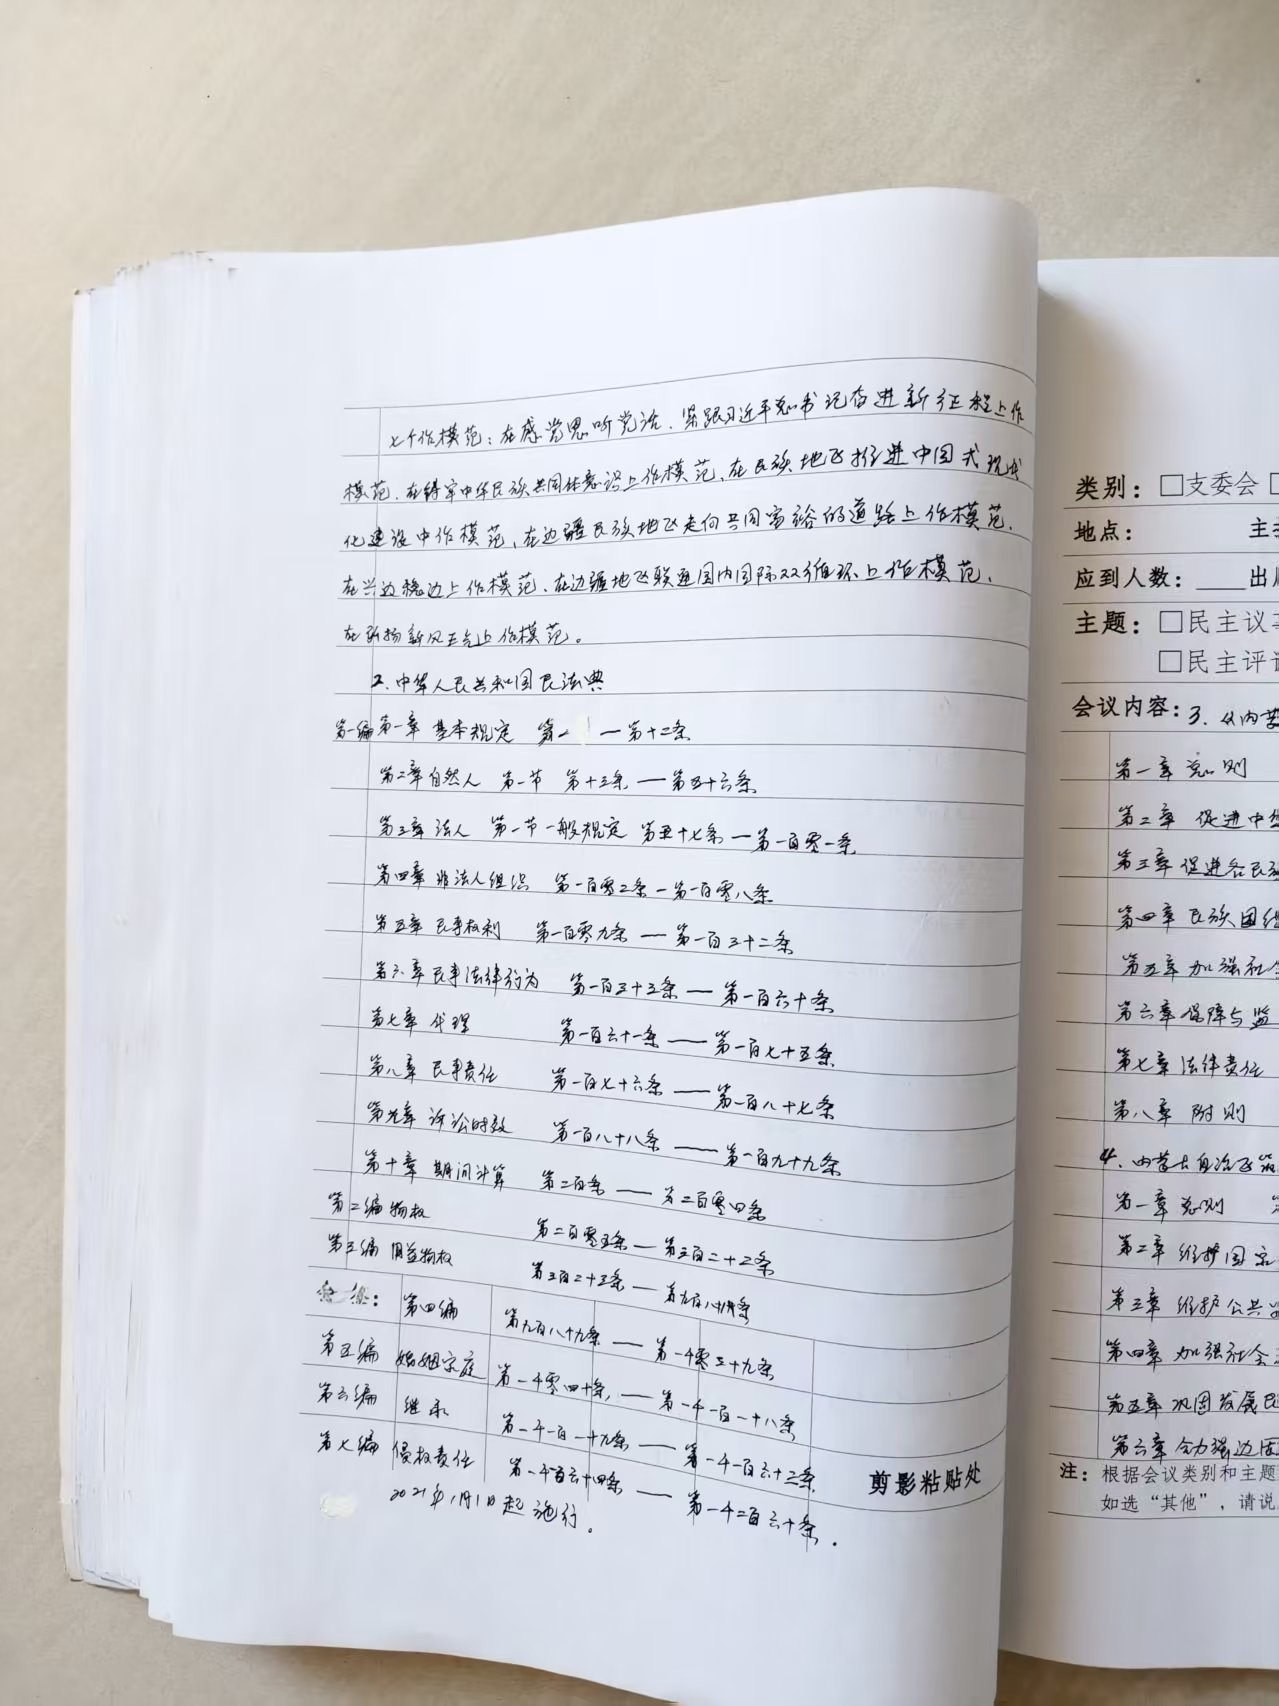 七个作模范：在感党恩听党话、紧跟习近平总书记奋进新征程上作
模范、在铸牢中华民族共同体意识上作模范、在民族地区推进中国式现代
化建设中作模范、在边疆民族地区走向共同富裕的道路上作模范、
在兴边稳边上作模范、在边疆地区联通国内国际双循环上作模范、
在弘扬新风正气上作模范。
2.中华人民共和国民法典
第一编第一章 基本规定 第一 — 第十二条
第二章自然人 第一节 第十三条 — 第五十六条
第三章 法人 第一节一般规定 第五十七条 — 第一百零一条
第四章 非法人组织 第一百零二条 — 第一百零八条
第五章 民事权利 第一百零九条 — 第一百三十二条
第六章 民事法律行为 第一百三十三条 — 第一百六十条
第七章 代理 第一百六十一条 — 第一百七十五条
第八章 民事责任 第一百七十六条 — 第一百八十七条
第九章 诉讼时效 第一百八十八条 — 第一百九十九条
第十章 期间计算 第二百条 — 第二百零四条
第二编物权 第二百零五条 — 第三百二十二条
第三编 用益物权 第三百二十三条 — 第九百八十八条
第四编 第九百八十九条 — 第一千零三十九条
第五编 婚姻家庭 第一千零四十条 — 第一千一百一十八条
第六编 继承 第一千一百一十九条 — 第一千一百六十三条
第七编 侵权责任 第一千一百六十四条 — 第一千二百六十条.
2021年1月1日起施行。
剪影粘贴处
类别：□支委会 □
地点： 主
应到人数：____出
主题：□民主议
□民主评
会议内容：3.从内蒙
第一章 总则
第二章 促进中华
第三章 促进各民族
第四章 民族团结
第五章 加强社会
第六章 保障与监
第七章 法律责任
第八章 附则
4.内蒙古自治区筑
第一章 总则 第
第二章 维护国家
第三章 维护公共
第四章 加强社会
第五章 巩固发展民
第六章 合力强边固
注：根据会议类别和主题
如选“其他”，请说